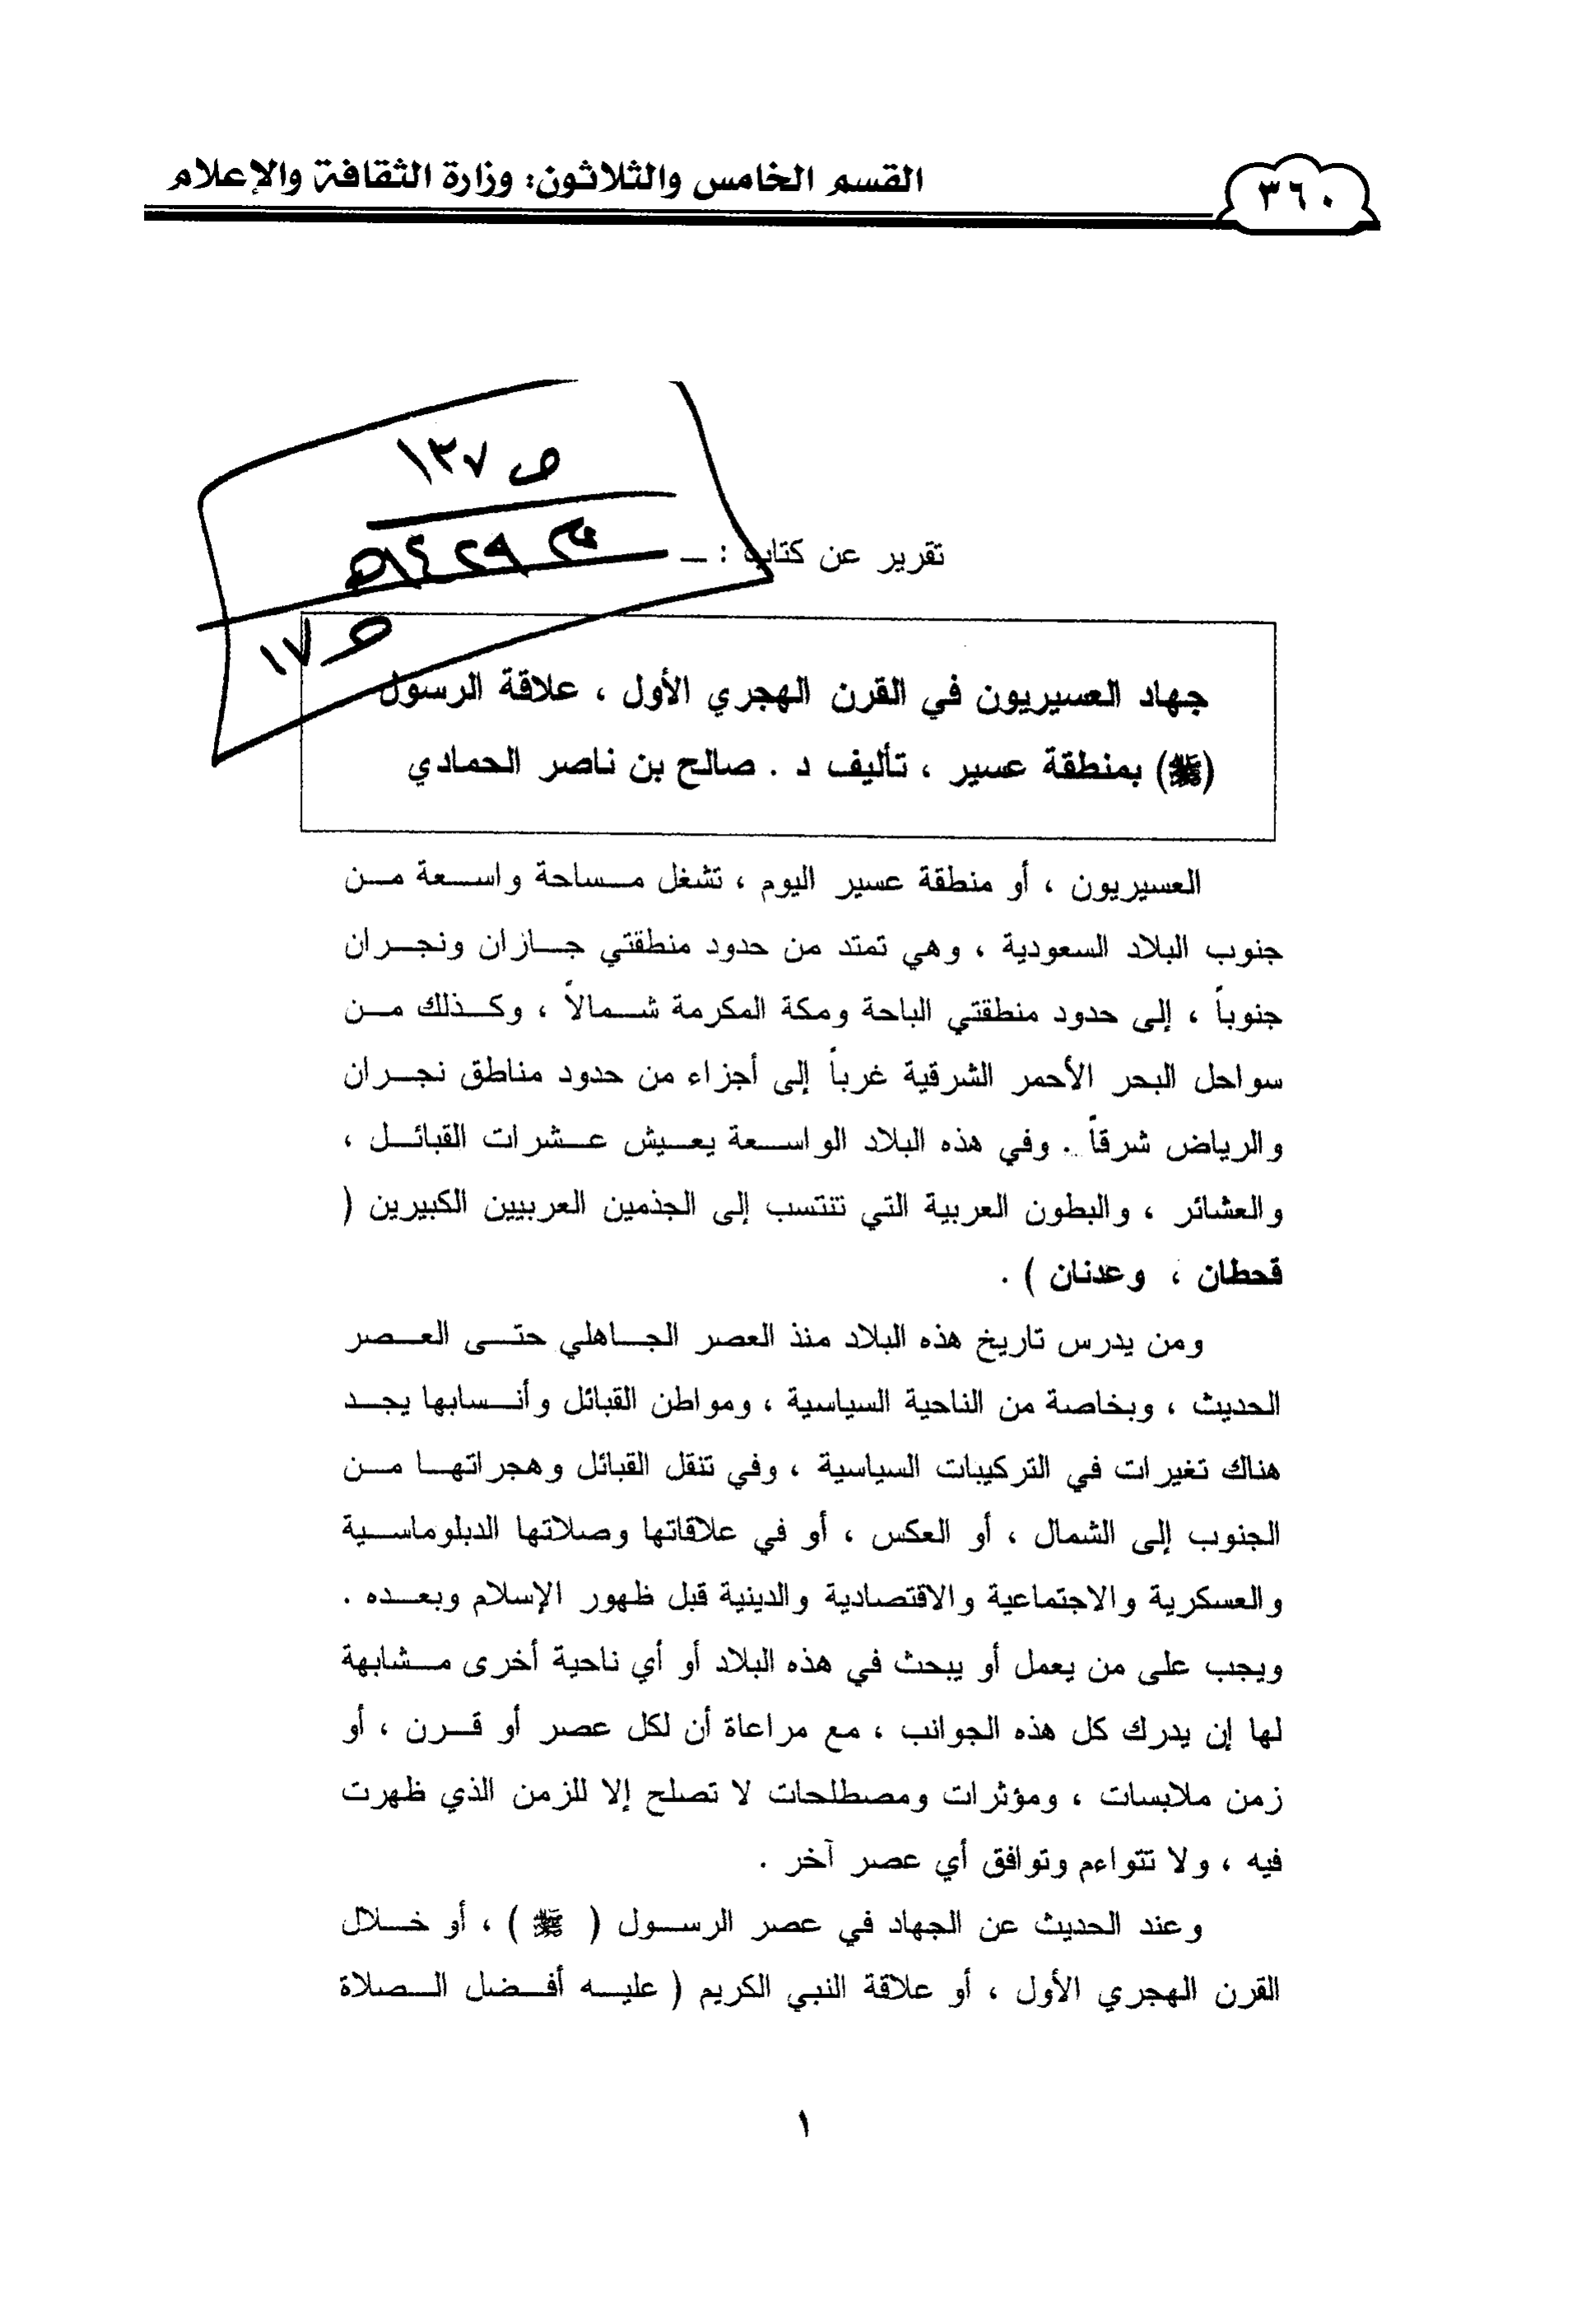 القسم الخامس والثلاثون: وزارة الثقافة والإعلام
٣٦٠
ص ١٣٧
ص ١٧
تقرير عن كتاب : ــ
جهاد العسيريون في القرن الهجري الأول ، علاقة الرسول
(ﷺ) بمنطقة عسير ، تأليف د . صالح بن ناصر الحمادي
العسيريون ، أو منطقة عسير اليوم ، تشغل مساحة واسعة من
جنوب البلاد السعودية ، وهي تمتد من حدود منطقتي جازان ونجران
جنوباً ، إلى حدود منطقتي الباحة ومكة المكرمة شمالاً ، وكذلك من
سواحل البحر الأحمر الشرقية غرباً إلى أجزاء من حدود مناطق نجران
والرياض شرقاً . وفي هذه البلاد الواسعة يعيش عشرات القبائل ،
والعشائر ، والبطون العربية التي تنتسب إلى الجذمين العربيين الكبيرين (
قحطان ، وعدنان ) .
ومن يدرس تاريخ هذه البلاد منذ العصر الجاهلي حتى العصر
الحديث ، وبخاصة من الناحية السياسية ، ومواطن القبائل وأنسابها يجد
هناك تغيرات في التركيبات السياسية ، وفي تنقل القبائل وهجراتها من
الجنوب إلى الشمال ، أو العكس ، أو في علاقاتها وصلاتها الدبلوماسية
والعسكرية والاجتماعية والاقتصادية والدينية قبل ظهور الإسلام وبعده .
ويجب على من يعمل أو يبحث في هذه البلاد أو أي ناحية أخرى مشابهة
لها إن يدرك كل هذه الجوانب ، مع مراعاة أن لكل عصر أو قرن ، أو
زمن ملابسات ، ومؤثرات ومصطلحات لا تصلح إلا للزمن الذي ظهرت
فيه ، ولا تتواءم وتوافق أي عصر آخر .
وعند الحديث عن الجهاد في عصر الرسول ( ﷺ ) ، أو خلال
القرن الهجري الأول ، أو علاقة النبي الكريم ( عليه أفضل الصلاة
١